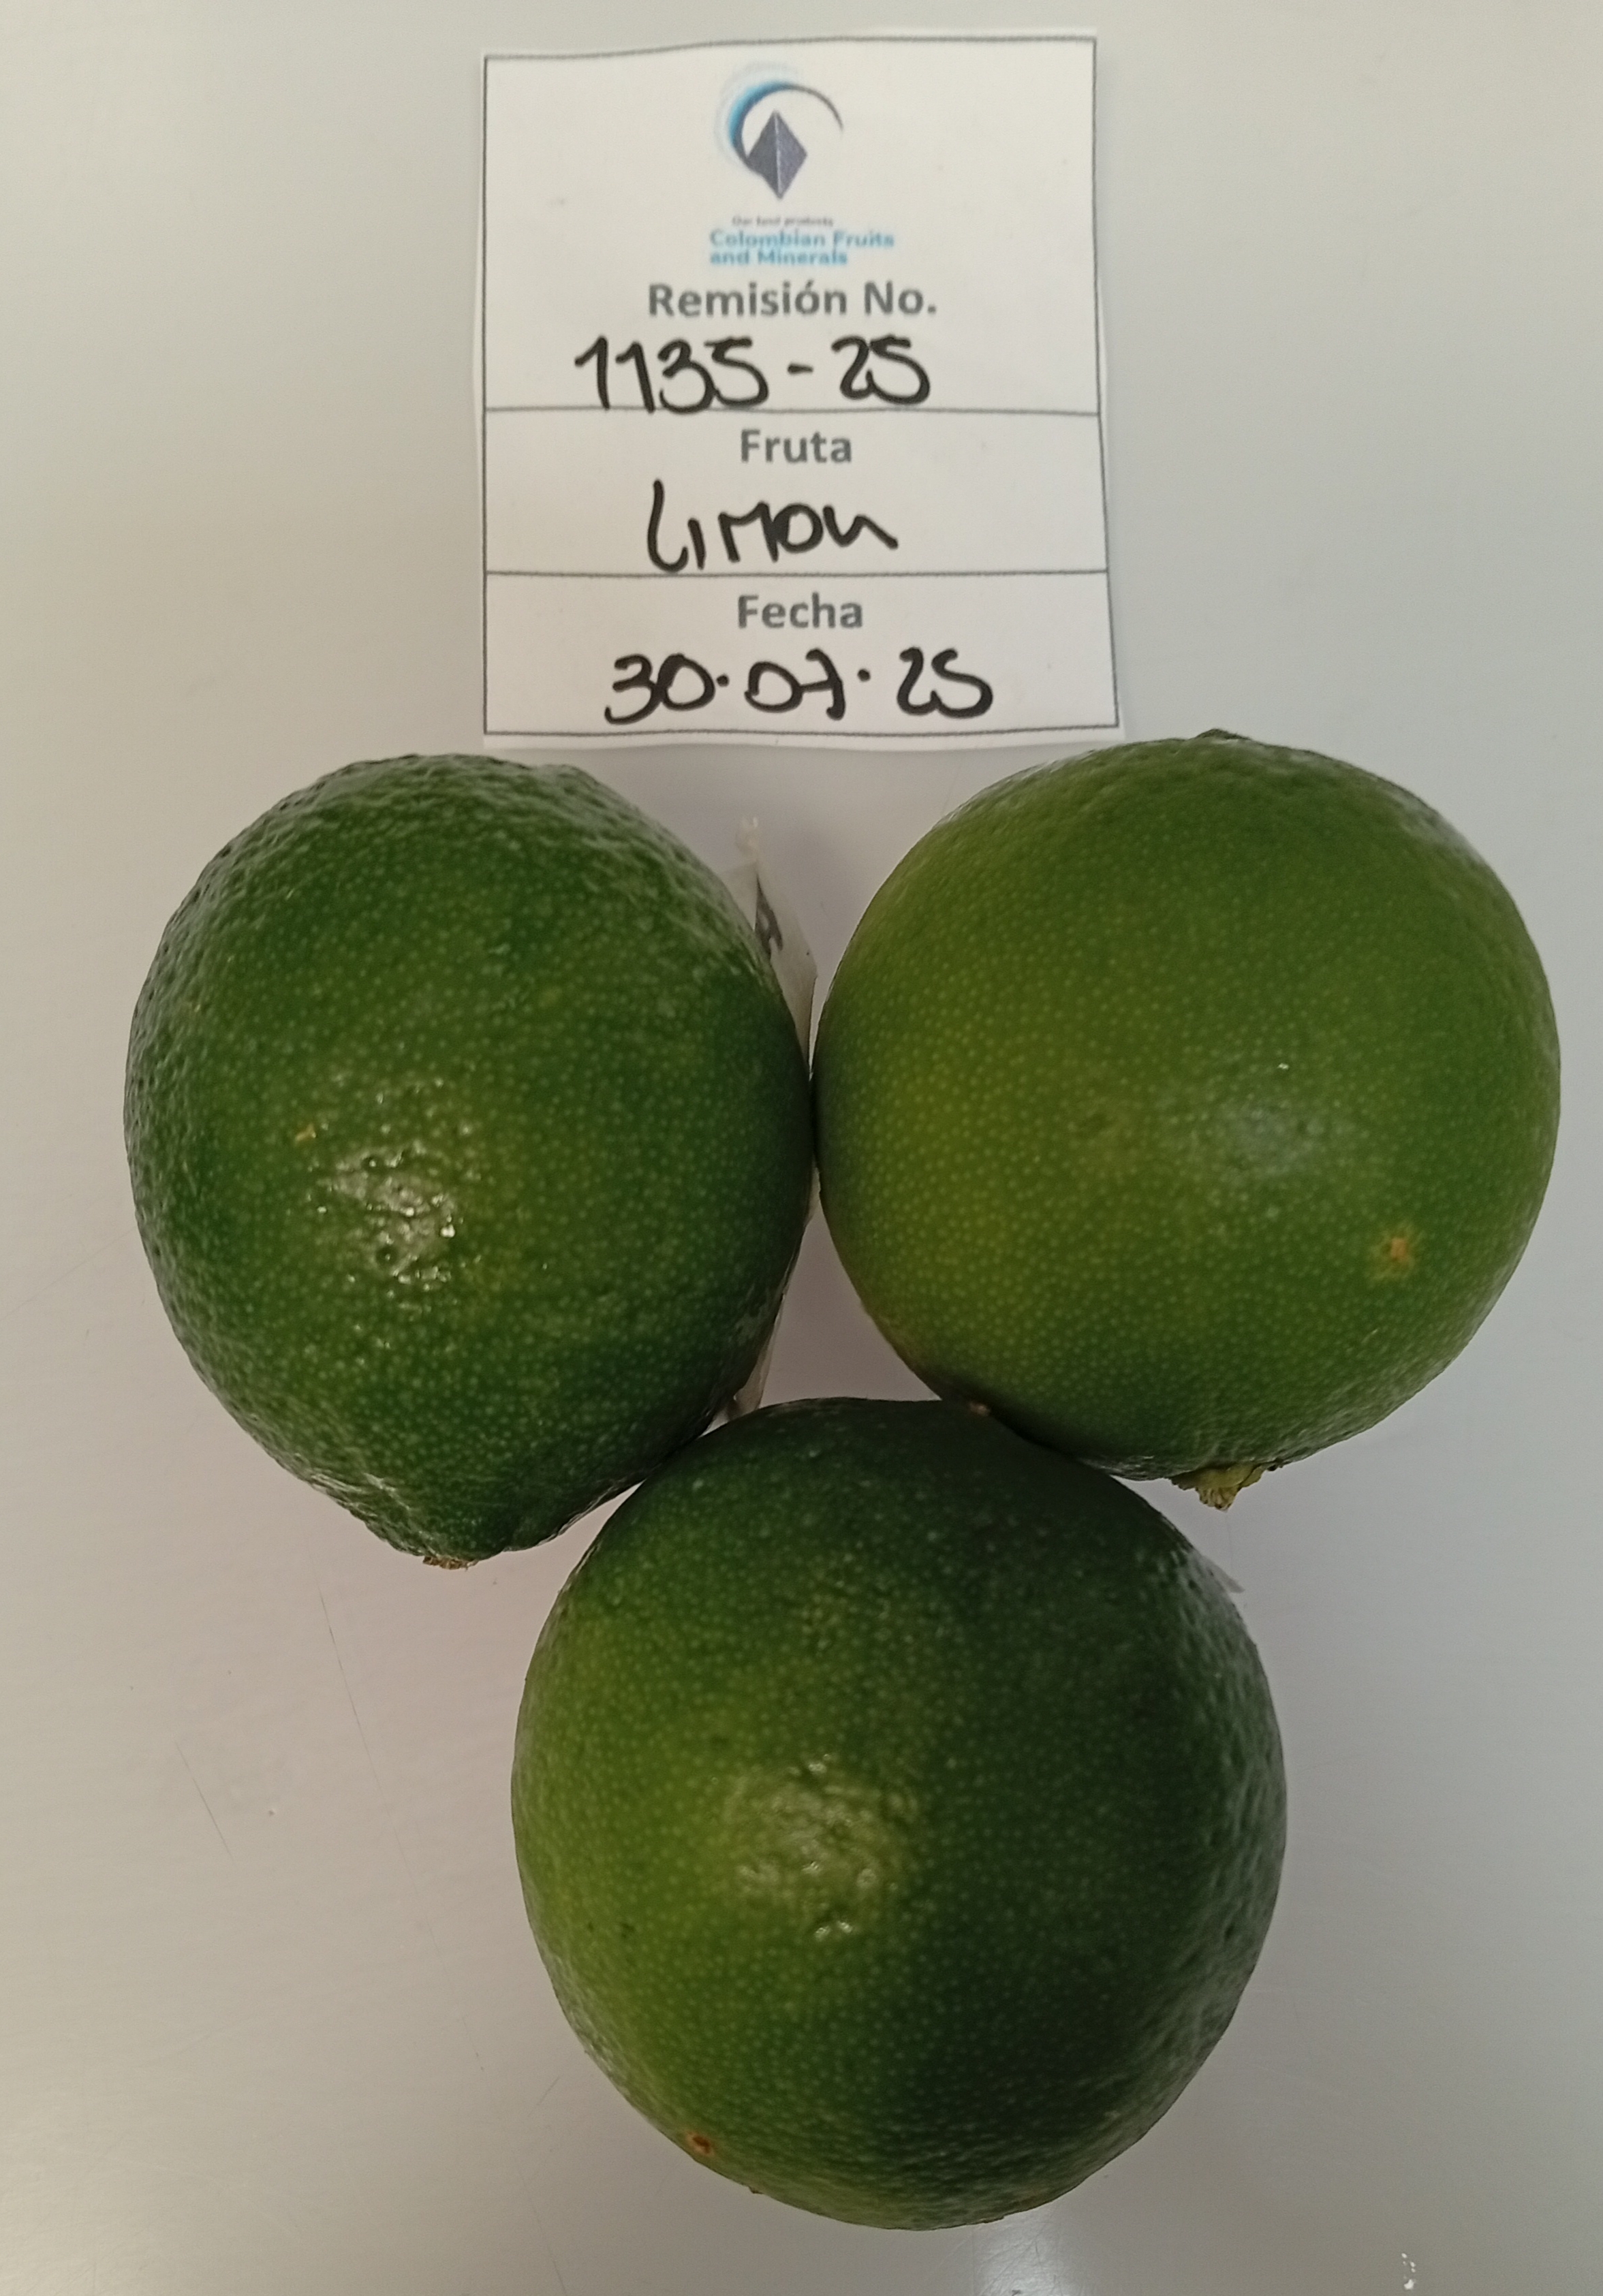 Our land products
Colombian Fruits
and Minerals
Remisión No.
1135-25
Fruta
Limon
Fecha
30.07.25